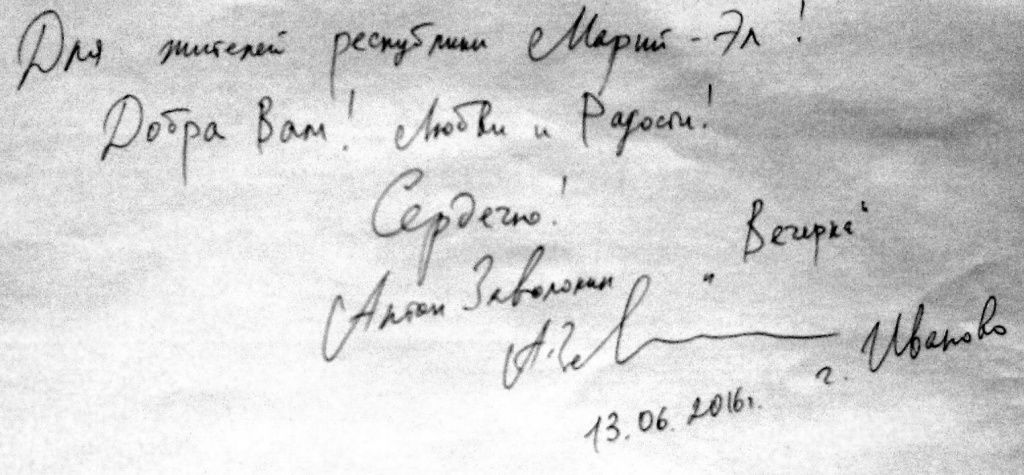 Для жителей республики Марий-Эл!
Добра Вам! Любви и Радости!
Сердечно!
Антон Заволокин "Вечерка"
А.За
г. Иваново
13.06.2016г.